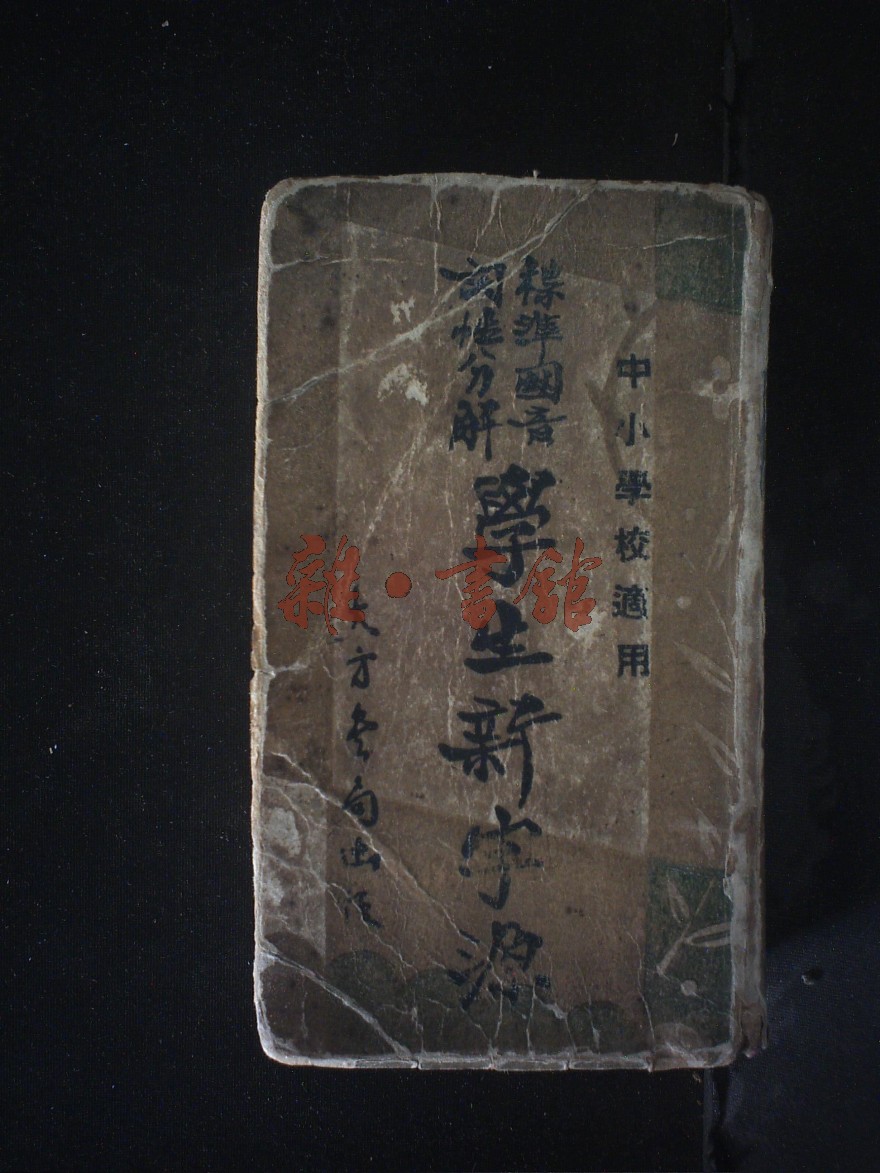 中小學校適用
標準國音
詞性分解
學生新字源
方書局出版
雜·書館